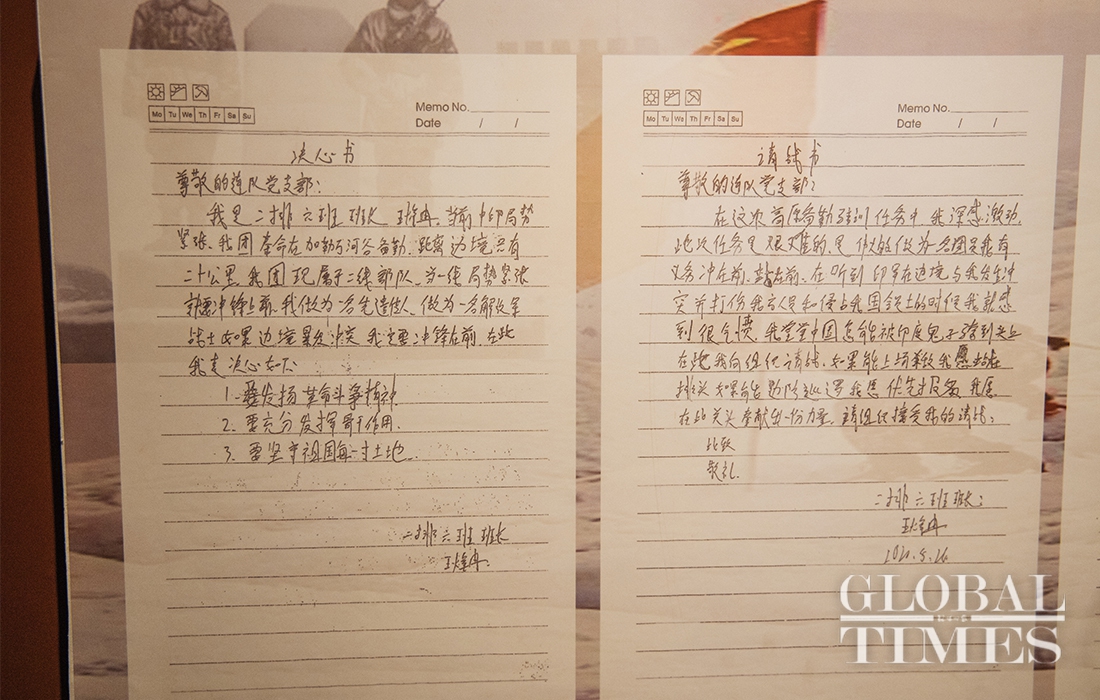 Mo Tu We Th Fr Sa Su
Memo No.
Date / /
决心书
尊敬的连队党支部:
我是二排六班班长王焯冉,当前中印局势
紧张,我团奉命在加勒万河谷备勤,距离边境只有
二十公里,我团现属于二线部队,当一线局势紧张
就要冲锋上前,我做为一名先遣队人,做为一名解放军
战士如果边境果发冲突我定要冲锋在前,在此
我表决心如下
1. 要发扬革命斗争精神
2. 要充分发挥骨干作用.
3. 要坚守祖国每一寸土地
二排六班班长
王焯冉
Mo Tu We Th Fr Sa Su
Memo No.
Date / /
请战书
尊敬的连队党支部:
在这次高原备勤驻训任务中,我深感激动,
此次任务是艰难的,是伟大的做为一名团员我有
义务冲在前,站在前,在听到印军在边境与我发生冲
突并打伤我方人员和侵占我国领土的时候我就感
到很气愤,我堂堂中国怎能被印度鬼子
在此我向组织请战,如果能上场杀敌我愿站在
排头如果能跟队巡逻我愿
在此关头奉献出一份力量,请组织接受我的请战:
此致
敬礼
二排六班班长:
王焯冉
2020.5.26
GLOBAL
TIMES